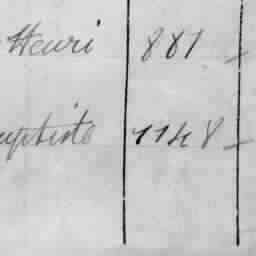 Henri 881 -
aptiste 1148 -